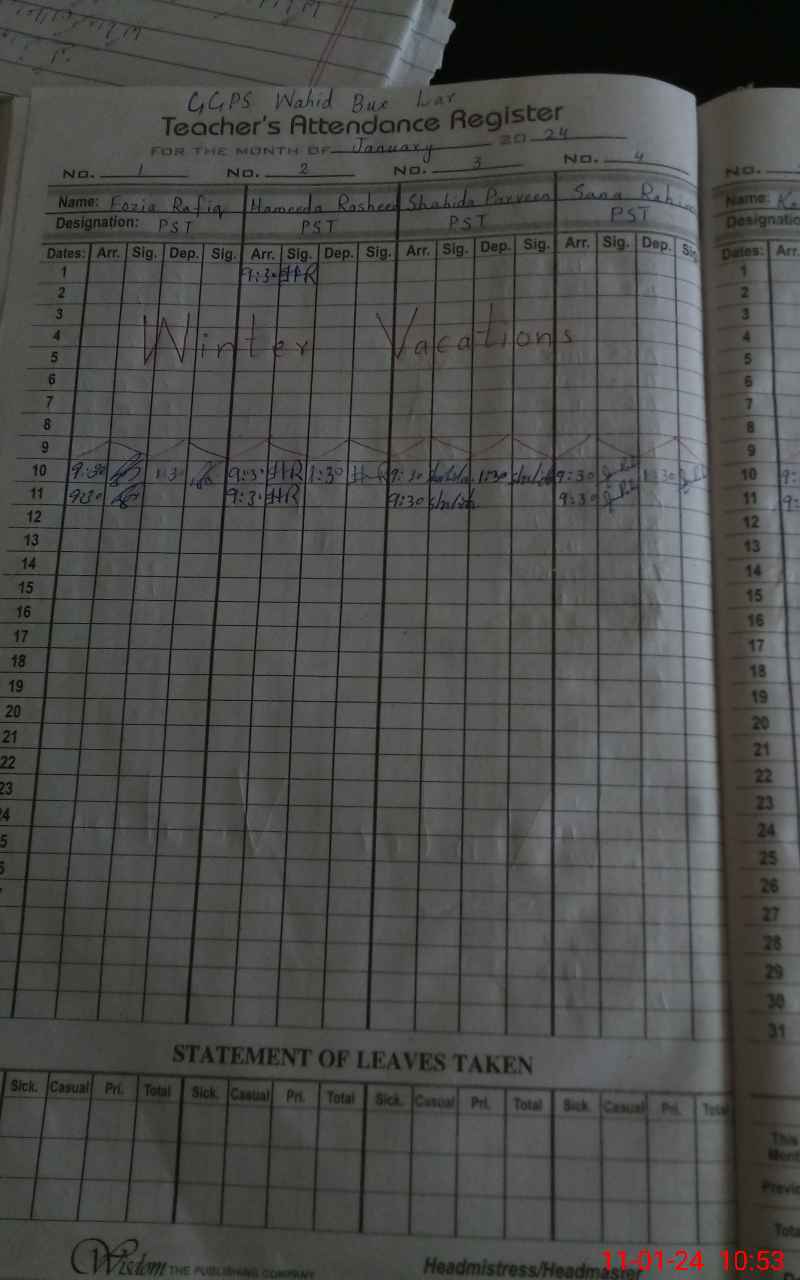 GGPS Wahid Bux Lar
Teacher's Attendance Register
FOR THE MONTH OF January 20 24
No. 1 No. 2 No. 3 No. 4 No.
Name: Fozia Rafiq Hameeda Rasheed Shahida Parveen Sana Rahim Name:
Designation: PST PST PST PST Designatio
Dates: Arr. Sig. Dep. Sig. Arr. Sig. Dep. Sig. Arr. Sig. Dep. Sig. Arr. Sig. Dep. Sig Dates: Arr.
1 9:30 HR 1
2 2
3 3
Winter Vacations
4 4
5 5
6 6
7 7
8 8
9 9
10 9:30 1:30 9:30 HR 1:30 HR 9:30 Shahida 1:30 Shahida 9:30 1:30 10 9:
11 9:30 9:30 HR 9:30 Shahida 9:30 11 9:
12 12
13 13
14 14
15 15
16 16
17 17
18 18
19 19
20 20
21 21
22 22
23 23
4 24
5 25
6 26
27
28
29
30
31
STATEMENT OF LEAVES TAKEN
Sick. Casual Pri. Total Sick. Casual Pri. Total Sick. Casual Pri. Total Sick. Casual Pri. Total
This
Mont
Previo
Tota
Wisdom THE PUBLISHING COMPANY Headmistress/Headmaster
11-01-24 10:53